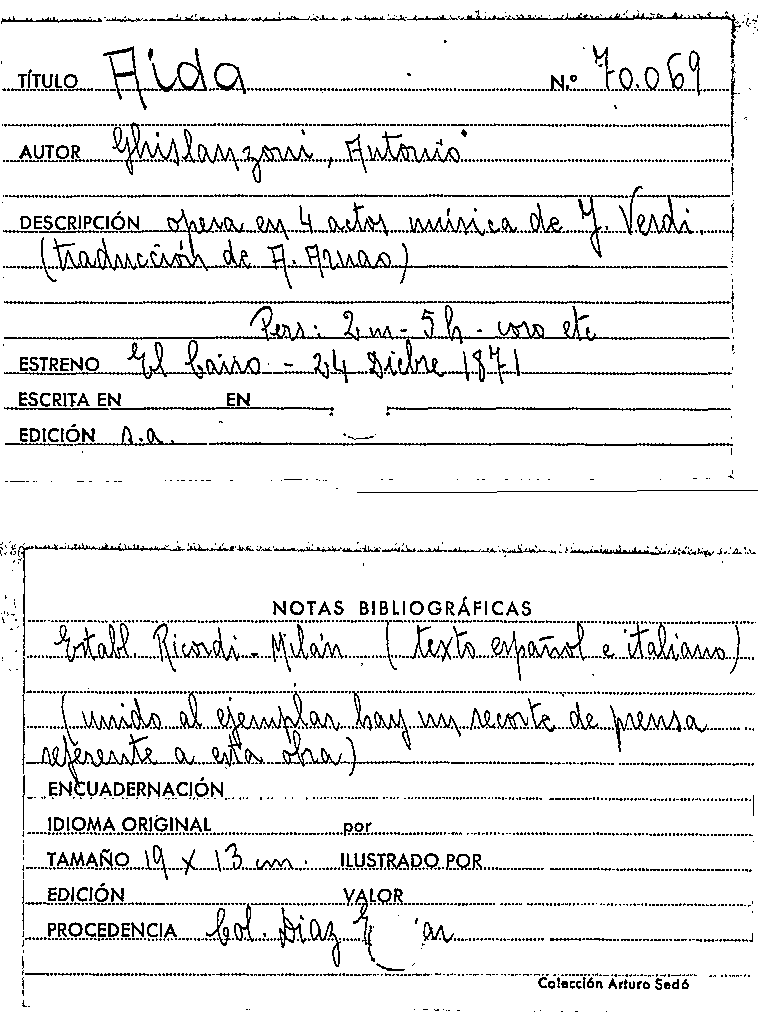 TÍTULO Aida N.º 70.069
AUTOR Ghislanzoni, Antonio
DESCRIPCIÓN opera en 4 actos música de J. Verdi.
(traducción de A. Arnao)
Pers: 2 m - 5 h - coro etc
ESTRENO El Cairo - 24 Dicbre 1871
ESCRITA EN EN
EDICIÓN s.a.
NOTAS BIBLIOGRÁFICAS
Establ. Ricordi - Milán (texto español e italiano)
(unido al ejemplar hay un recorte de prensa
referente a esta obra)
ENCUADERNACIÓN
IDIOMA ORIGINAL por
TAMAÑO 19 x 13 cm. ILUSTRADO POR
EDICIÓN VALOR
PROCEDENCIA Col. Diaz
Colección Arturo Sedó